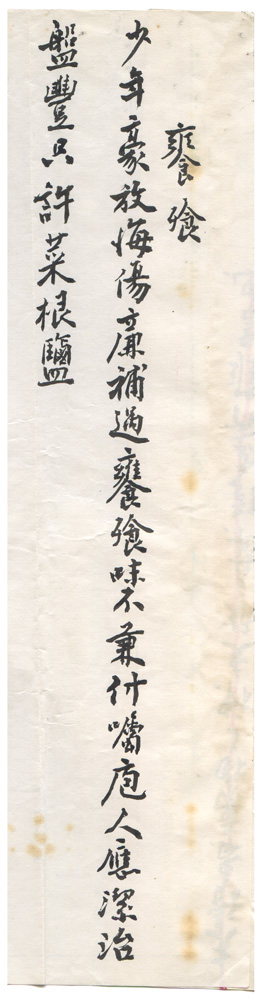 饔飱
少年豪放悔傷廉補過饔飱味不兼付囑庖人應潔治
盤豐只許菜根鹽